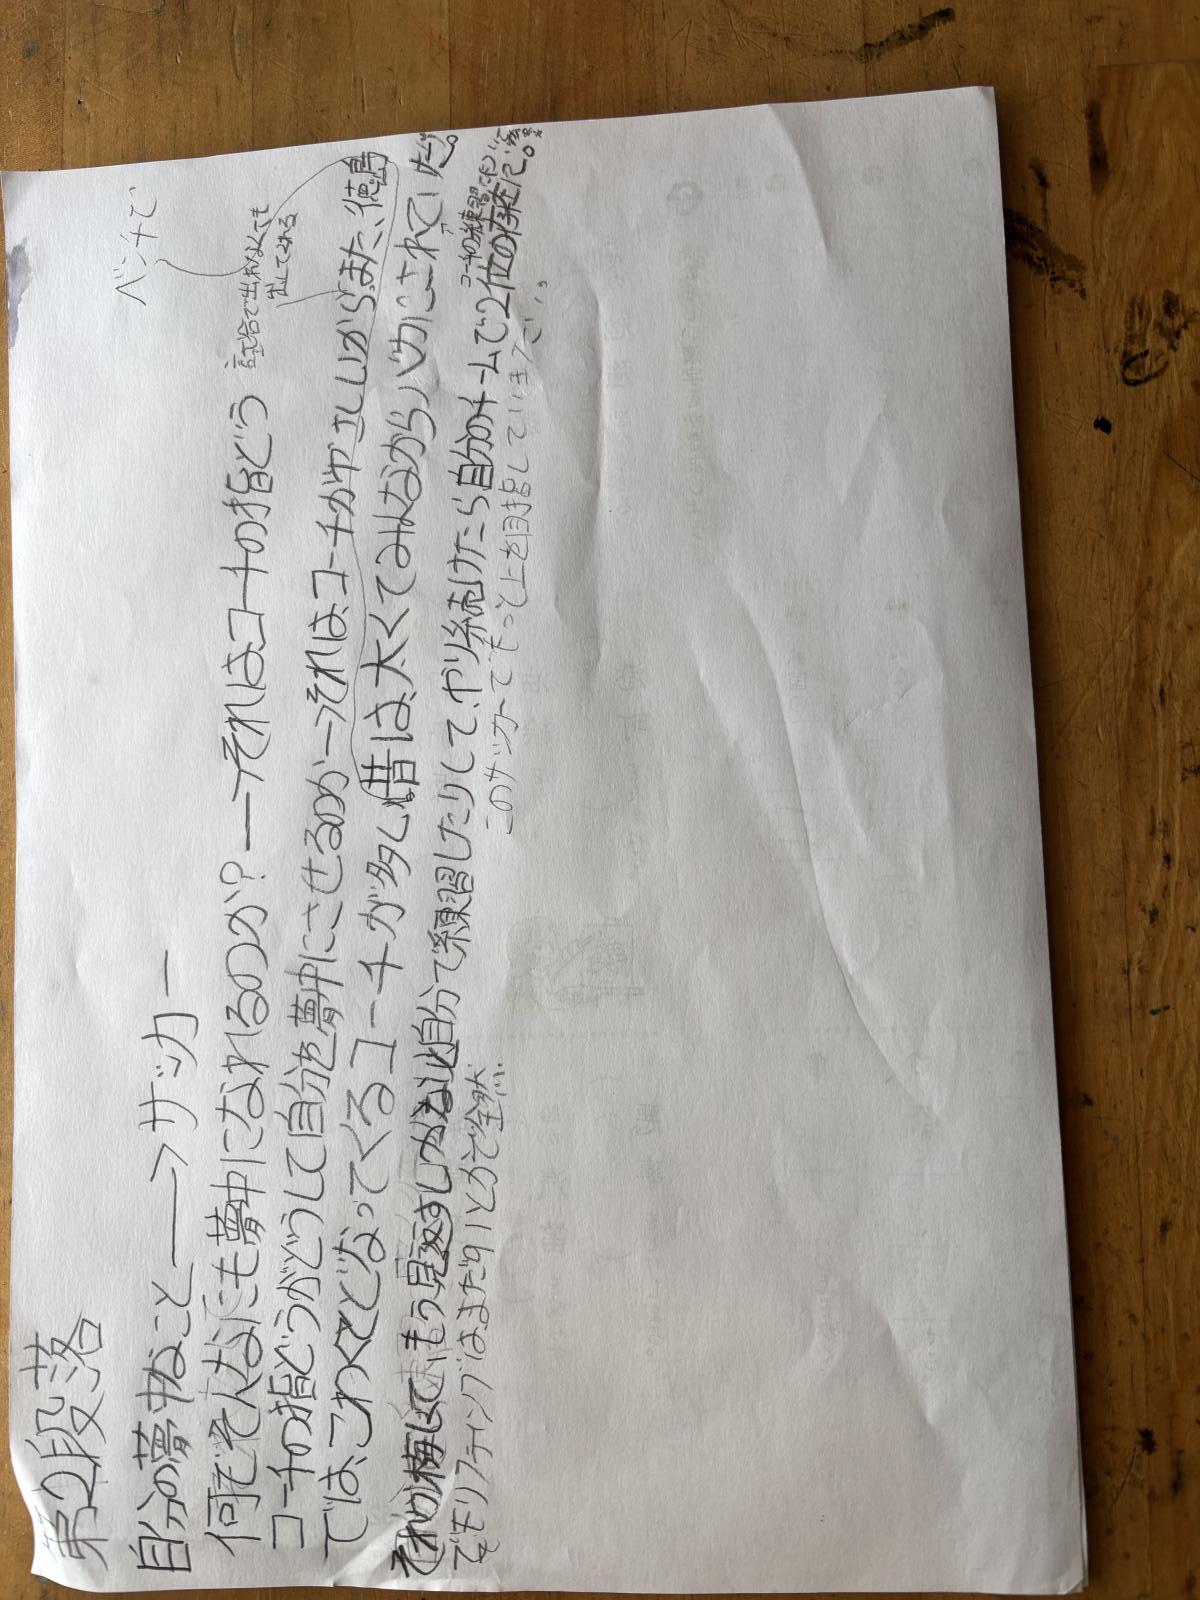 第2段落
ベンチで
自分の夢中なこと―→サッカー
試合で出れなくても
出してくれる
何でそんなにも夢中になれるのか?―→それは、コーチの指どう
コーチの指どうがどうして自分を夢中にさせるのか―→それは、コーチがやさしいから。また、徳島
では、こわくてどなってくるコーチが多い。昔は、太くてみんなからバカにされていた。
それが悔しくてもう見返すしかないと自分で練習したりして、やり続けたら自分のチームで2位の存在に。
コーチの練習
でもリフティングはまだ91とかで全然
このサッカーでもっと上を目指していきたい。